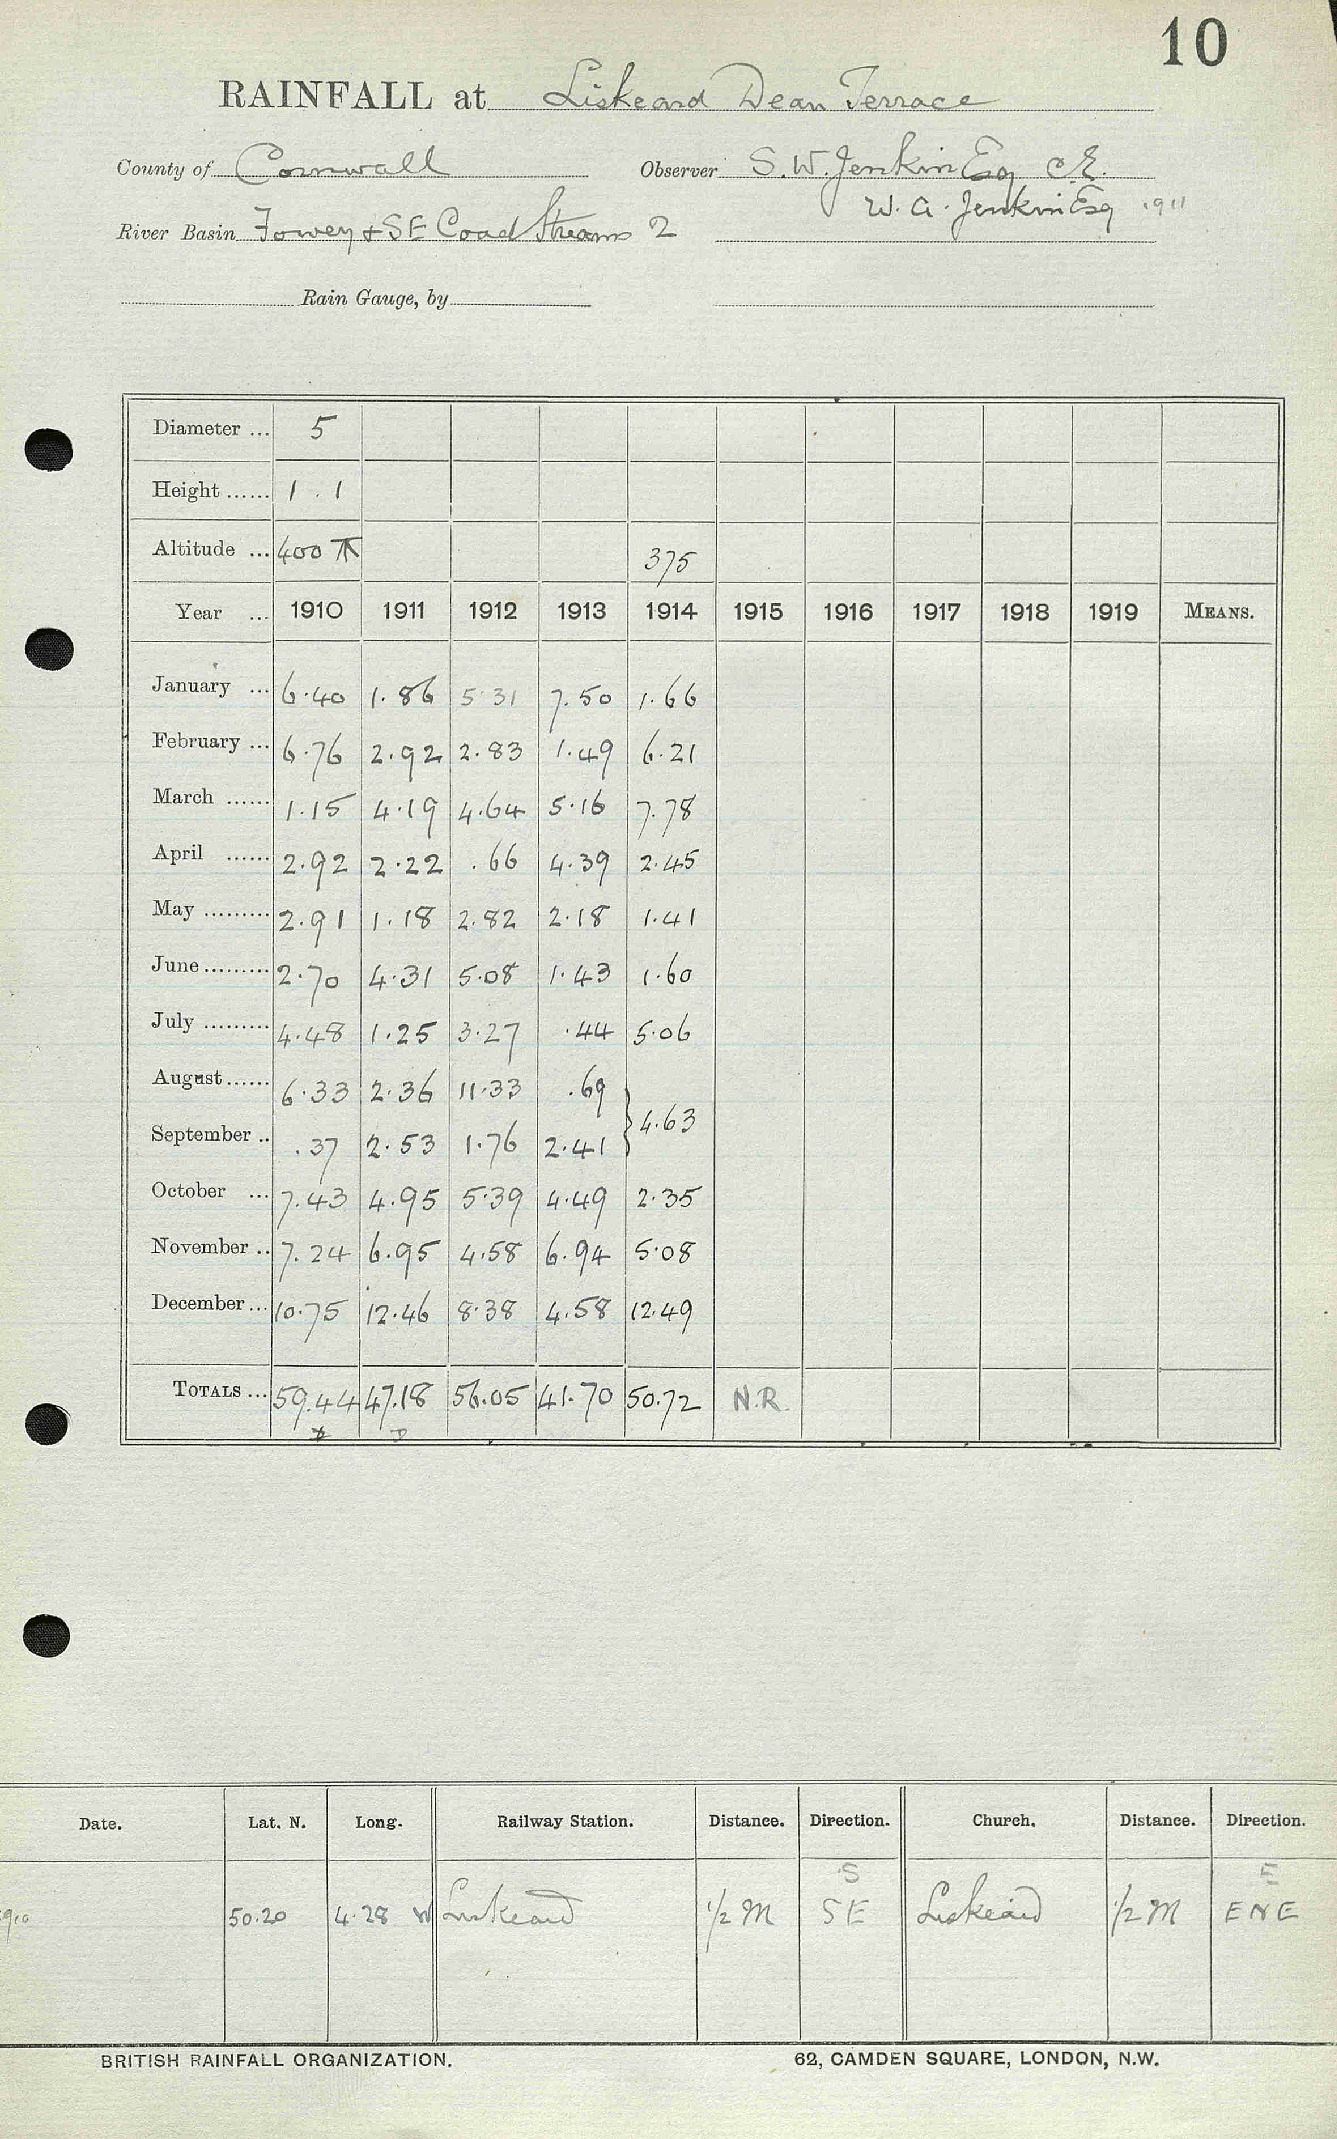 10
RAINFALL at Liskeard Dean Terrace
County of Cornwall Observer S.W. Jenkin Esq C.E.
W. A. Jenkin Esq 1911
River Basin Fowey & SE Coast Streams 2
Rain Gauge, by
Diameter ... 5
Height ...... 1 . 1
Altitude ... 400 375
Year ... 1910 1911 1912 1913 1914 1915 1916 1917 1918 1919 MEANS.
January ... 6.40 1.86 5.31 7.50 1.66
February ... 6.76 2.92 2.83 1.49 6.21
March ...... 1.15 4.19 4.64 5.16 7.78
April ...... 2.92 2.22 .66 4.39 2.45
May ......... 2.91 1.18 2.82 2.18 1.41
June ......... 2.70 4.31 5.08 1.43 1.60
July ......... 4.48 1.25 3.27 .44 5.06
August ...... 6.33 2.36 11.33 .69
} 4.63
September .. .37 2.53 1.76 2.41
October ... 7.43 4.95 5.39 4.49 2.35
November .. 7.24 6.95 4.58 6.94 5.08
December ... 10.75 12.46 8.38 4.58 12.49
TOTALS ... 59.44 47.18 56.05 41.70 50.72 N.R.
Date. Lat. N. Long. Railway Station. Distance. Direction. Church. Distance. Direction.
S E
1910 50.20 4.28 W Liskeard 1/2 M SE Liskeard 1/2 M ENE
BRITISH RAINFALL ORGANIZATION. 62, CAMDEN SQUARE, LONDON, N.W.